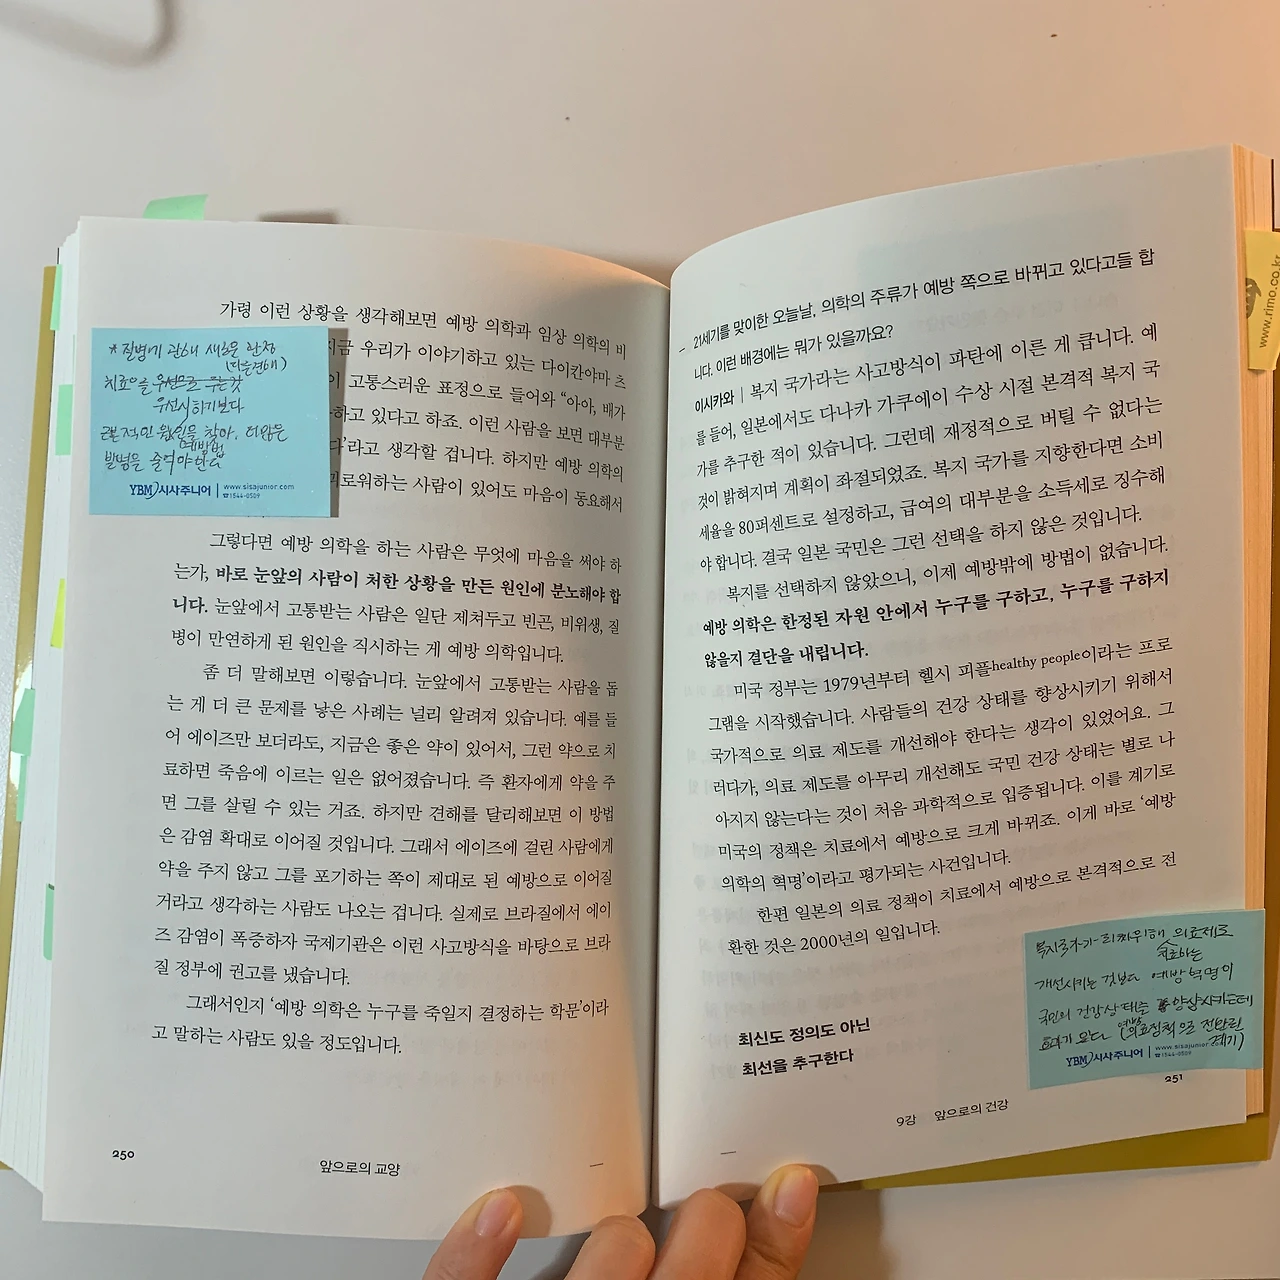 가령 이런 상황을 생각해보면 예방 의학과 임상 의학의 비
지금 우리가 이야기하고 있는 다이칸야마 츠
이 고통스러운 표정으로 들어와 “아아, 배가
하고 있다고 하죠. 이런 사람을 보면 대부분
다’라고 생각할 겁니다. 하지만 예방 의학의
괴로워하는 사람이 있어도 마음이 동요해서
*질병에 관해 새로운 관점
(다른견해)
치료을 우선으로 두는것
우선시하기보다
근본적인 원인을 찾아, 더많은
예방법
발병을 줄여야한다
YBM 시사주니어 www.sisajunior.com
☎1544-0509
그렇다면 예방 의학을 하는 사람은 무엇에 마음을 써야 하
는가, 바로 눈앞의 사람이 처한 상황을 만든 원인에 분노해야 합
니다. 눈앞에서 고통받는 사람은 일단 제쳐두고 빈곤, 비위생, 질
병이 만연하게 된 원인을 직시하는 게 예방 의학입니다.
좀 더 말해보면 이렇습니다. 눈앞에서 고통받는 사람을 돕
는 게 더 큰 문제를 낳은 사례는 널리 알려져 있습니다. 예를 들
어 에이즈만 보더라도, 지금은 좋은 약이 있어서, 그런 약으로 치
료하면 죽음에 이르는 일은 없어졌습니다. 즉 환자에게 약을 주
면 그를 살릴 수 있는 거죠. 하지만 견해를 달리해보면 이 방법
은 감염 확대로 이어질 것입니다. 그래서 에이즈에 걸린 사람에게
약을 주지 않고 그를 포기하는 쪽이 제대로 된 예방으로 이어질
거라고 생각하는 사람도 나오는 겁니다. 실제로 브라질에서 에이
즈 감염이 폭증하자 국제기관은 이런 사고방식을 바탕으로 브라
질 정부에 권고를 냈습니다.
그래서인지 ‘예방 의학은 누구를 죽일지 결정하는 학문’이라
고 말하는 사람도 있을 정도입니다.
250
앞으로의 교양
21세기를 맞이한 오늘날, 의학의 주류가 예방 쪽으로 바뀌고 있다고들 합
니다. 이런 배경에는 뭐가 있을까요?
이시카와 | 복지 국가라는 사고방식이 파탄에 이른 게 큽니다. 예
를 들어, 일본에서도 다나카 가쿠에이 수상 시절 본격적 복지 국
가를 추구한 적이 있습니다. 그런데 재정적으로 버틸 수 없다는
것이 밝혀지며 계획이 좌절되었죠. 복지 국가를 지향한다면 소비
세율을 80퍼센트로 설정하고, 급여의 대부분을 소득세로 징수해
야 합니다. 결국 일본 국민은 그런 선택을 하지 않은 것입니다.
복지를 선택하지 않았으니, 이제 예방밖에 방법이 없습니다.
예방 의학은 한정된 자원 안에서 누구를 구하고, 누구를 구하지
않을지 결단을 내립니다.
미국 정부는 1979년부터 헬시 피플healthy people이라는 프로
그램을 시작했습니다. 사람들의 건강 상태를 향상시키기 위해서
국가적으로 의료 제도를 개선해야 한다는 생각이 있었어요. 그
러다가, 의료 제도를 아무리 개선해도 국민 건강 상태는 별로 나
아지지 않는다는 것이 처음 과학적으로 입증됩니다. 이를 계기로
미국의 정책은 치료에서 예방으로 크게 바뀌죠. 이게 바로 ‘예방
의학의 혁명’이라고 평가되는 사건입니다.
한편 일본의 의료 정책이 치료에서 예방으로 본격적으로 전
환한 것은 2000년의 일입니다.
최신도 정의도 아닌
최선을 추구한다
복지국가가 되기위해 의료제도
치료하는
개선시키는 것보다 예방혁명이
국민의 건강상태를 향상시키는데
효과가 있다 (의료정책으로 전환된
예방
계기)
YBM 시사주니어 www.sisajunior
☎1544-0509
251
9강 앞으로의 건강
www.rimo.co.kr